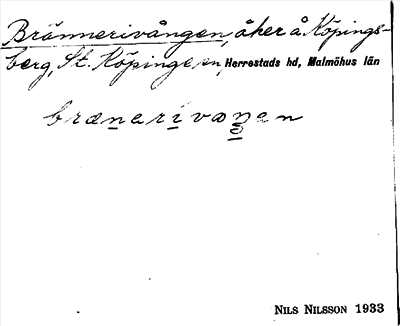 Brännerivången, åker å Köpings-
berg, St. Köpinge sn, Herrestads hd, Malmöhus län
brænarivaŋen
NILS NILSSON 1933